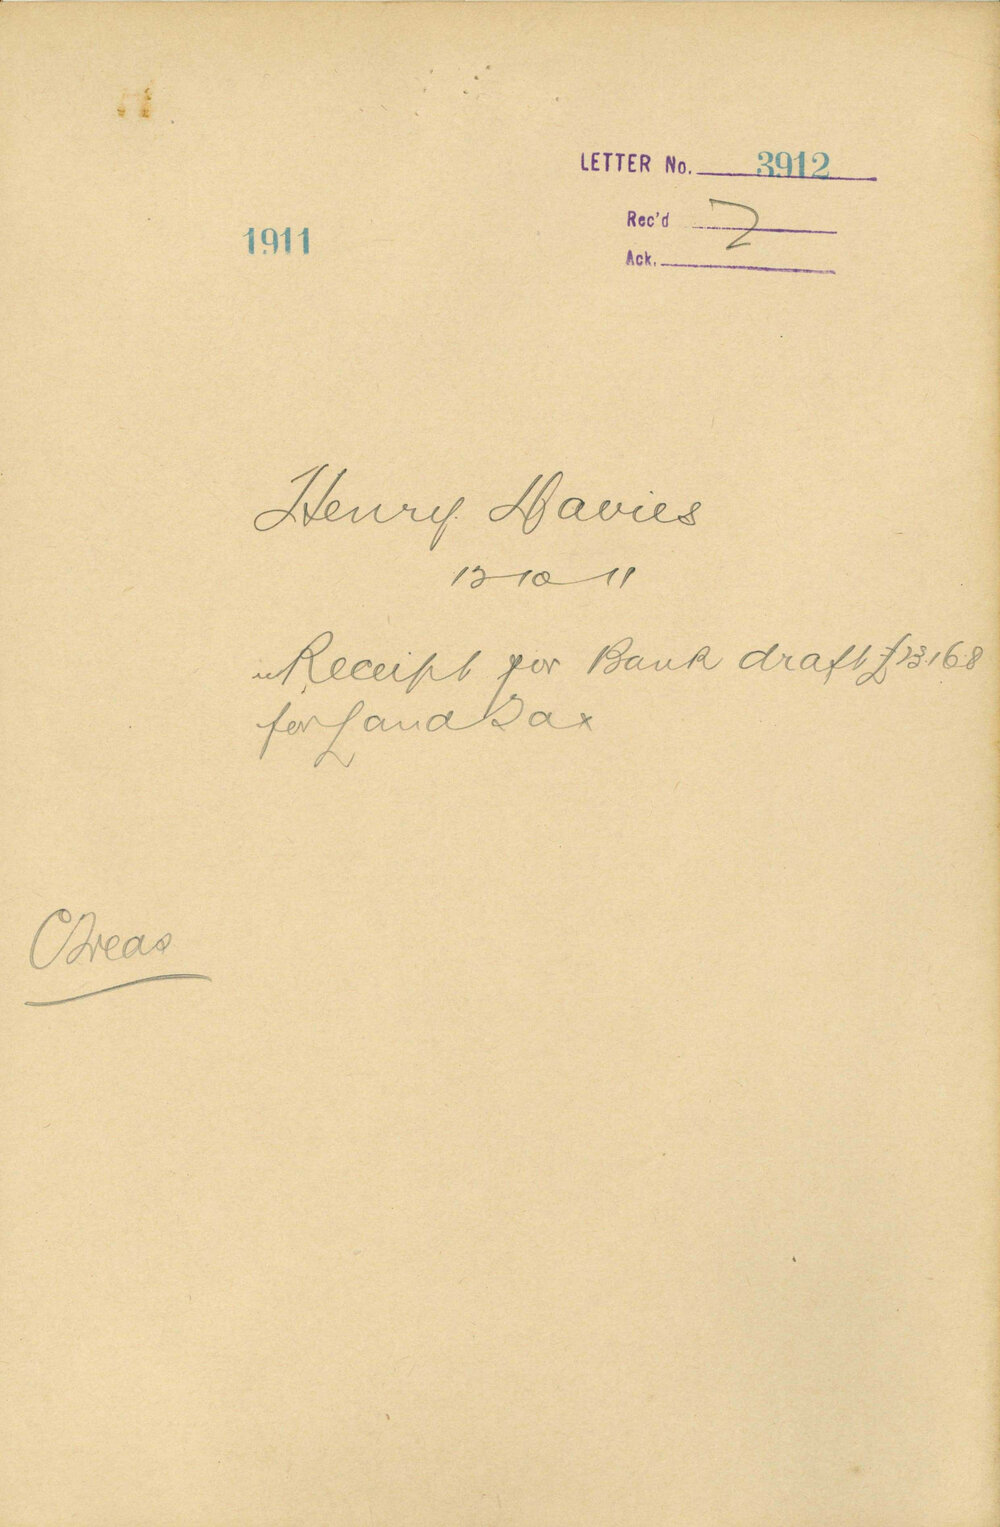 LETTER No. 3912
1911
Rec'd 7
Ack.
Henry Davies
13-10-11
Receipt for Bank draft £23.16.8
for Land Tax
Treas